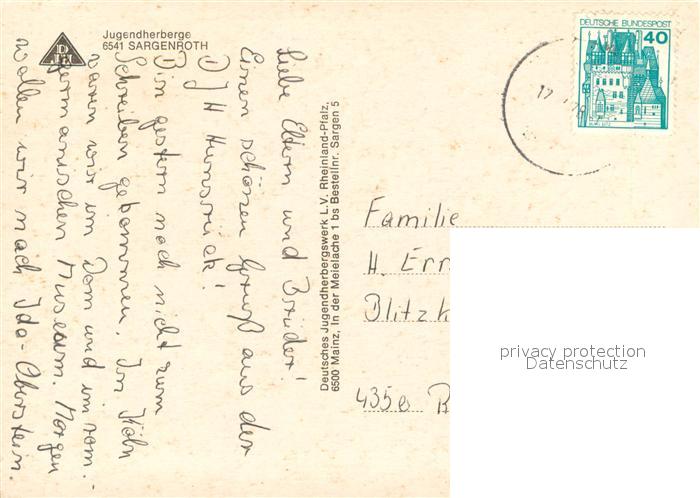 Jugendherberge
6541 SARGENROTH
DJH
DEUTSCHE BUNDESPOST
40
Liebe Eltern und Brüder!
Einen schönen Gruß aus der
DJH Hunsrück!
Bin gestern noch nicht zum
Schreiben gekommen. In Köln
waren wir im Dom und im röm.-
germanischen Museum. Morgen
wollen wir nach Ida-Oberstein.
Deutsches Jugendherbergswerk L.V. Rheinland-Pfalz,
6500 Mainz, In der Meielache 1 bs Bestellnr. Sargen 5
Familie
H. Err
Blitzk
435e R
privacy protection
Datenschutz